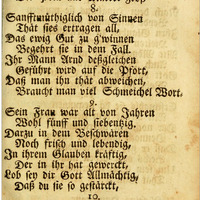 8.
Sanfftmüthiglich von Sinnen
Thät sies ertragen all,
Das ewig Gut zu g'winnen
Begehrt sie in dem Fall.
Ihr Mann Arnd deßgleichen
Geführt ward auf die Pfort,
Daß man ihn thät abweichen,
Braucht man viel Schmeichel Wort.
9.
Sein Frau war alt von Jahren
Wohl fünff und siebentzig,
Darzu in dem Beschwären
Noch frisch und lebendig,
In ihrem Glauben kräftig,
Der in ihr hat gewerckt,
Lob sey dir Gott Allmächtig,
Daß du sie so gestärckt,
10.